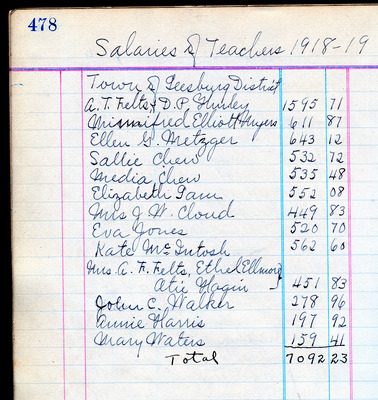 478
Salaries of Teachers 1918-19
Town of Leesburg District
A. T. Felts, & D. P. Hurley 1595 71
Minnifred Elliott Hyers 611 87
Ellen G. Metzger 643 12
Sallie Chew 532 72
Media Chew 535 48
Elizabeth Pam 552 08
Mrs J. W. Cloud 449 83
Eva Jones 520 70
Kate McIntosh 562 60
Mrs. A. F. Felts, Ethel Ellmore
Atie Hagin 451 83
John C. Walker 278 96
Annie Harris 197 92
Mary Waters 159 41
Total 7092 23